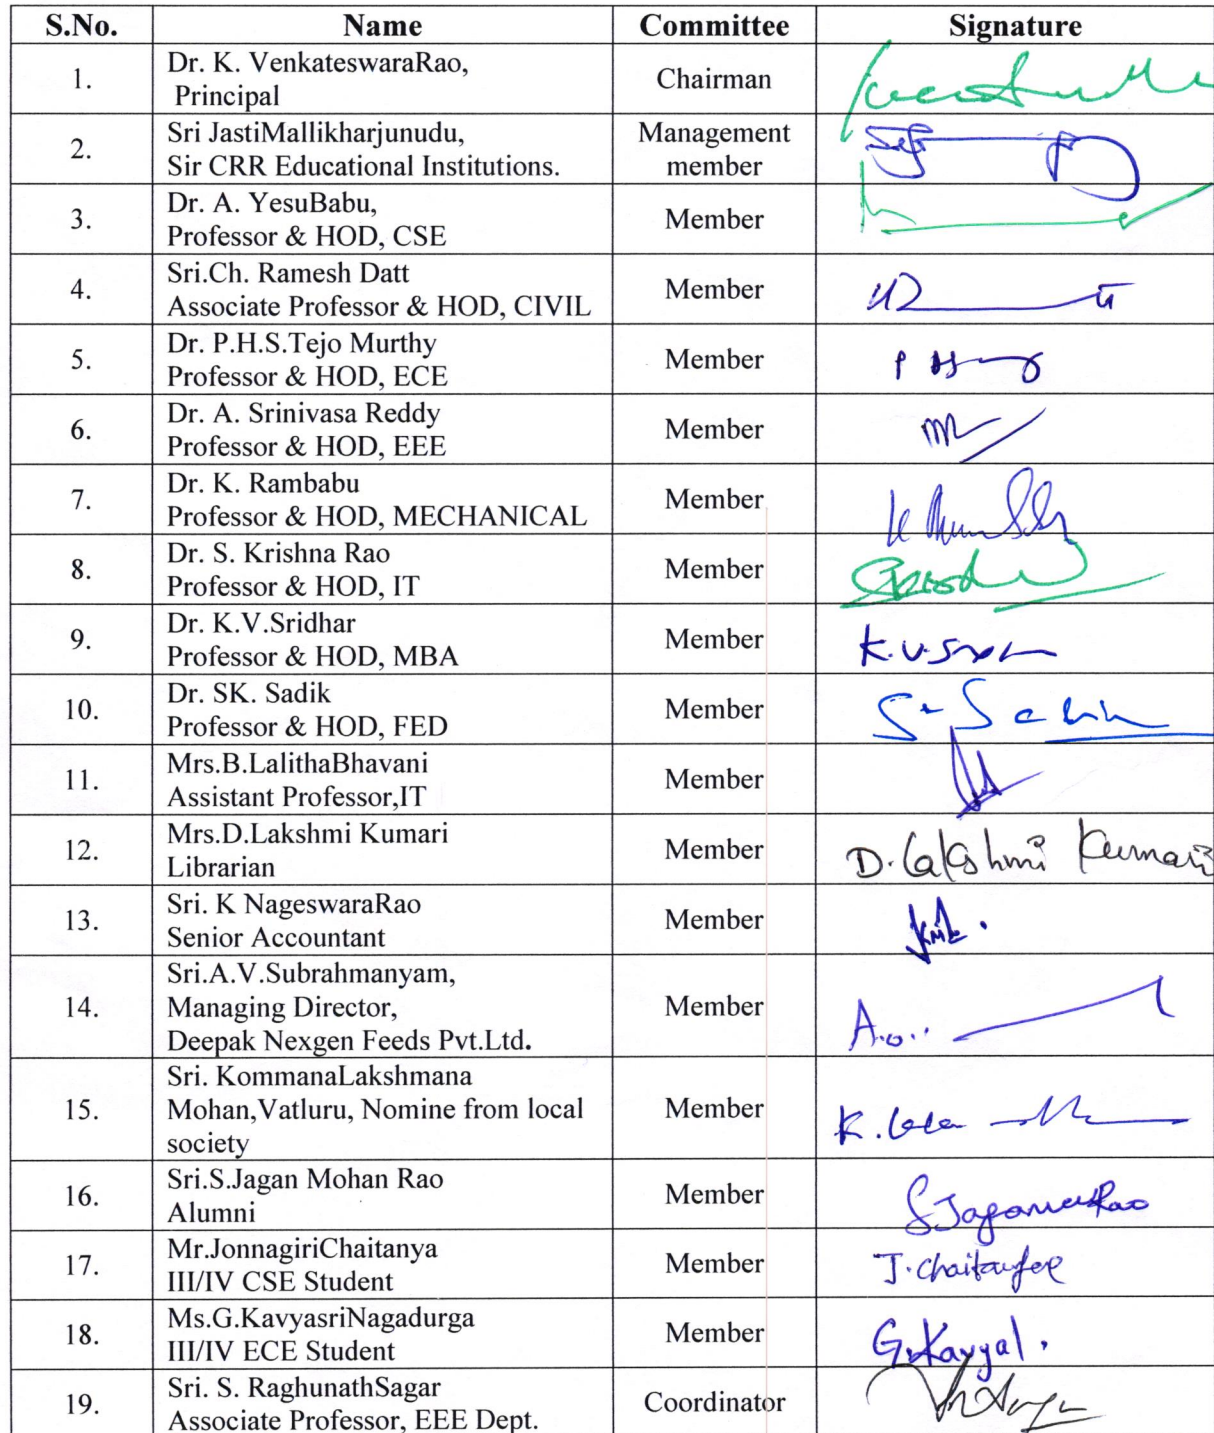 S.No. Name Committee Signature
1. Dr. K. VenkateswaraRao,
Principal Chairman
2. Sri JastiMallikharjunudu,
Sir CRR Educational Institutions. Management
member
3. Dr. A. YesuBabu,
Professor & HOD, CSE Member
4. Sri.Ch. Ramesh Datt
Associate Professor & HOD, CIVIL Member
5. Dr. P.H.S.Tejo Murthy
Professor & HOD, ECE Member
6. Dr. A. Srinivasa Reddy
Professor & HOD, EEE Member
7. Dr. K. Rambabu
Professor & HOD, MECHANICAL Member
8. Dr. S. Krishna Rao
Professor & HOD, IT Member
9. Dr. K.V.Sridhar
Professor & HOD, MBA Member
10. Dr. SK. Sadik
Professor & HOD, FED Member
11. Mrs.B.LalithaBhavani
Assistant Professor,IT Member
12. Mrs.D.Lakshmi Kumari
Librarian Member D.Lakshmi Kumari
13. Sri. K NageswaraRao
Senior Accountant Member
14. Sri.A.V.Subrahmanyam,
Managing Director,
Deepak Nexgen Feeds Pvt.Ltd. Member
15. Sri. KommanaLakshmana
Mohan,Vatluru, Nomine from local
society Member
16. Sri.S.Jagan Mohan Rao
Alumni Member
17. Mr.JonnagiriChaitanya
III/IV CSE Student Member J.Chaitanya
18. Ms.G.KavyasriNagadurga
III/IV ECE Student Member
19. Sri. S. RaghunathSagar
Associate Professor, EEE Dept. Coordinator